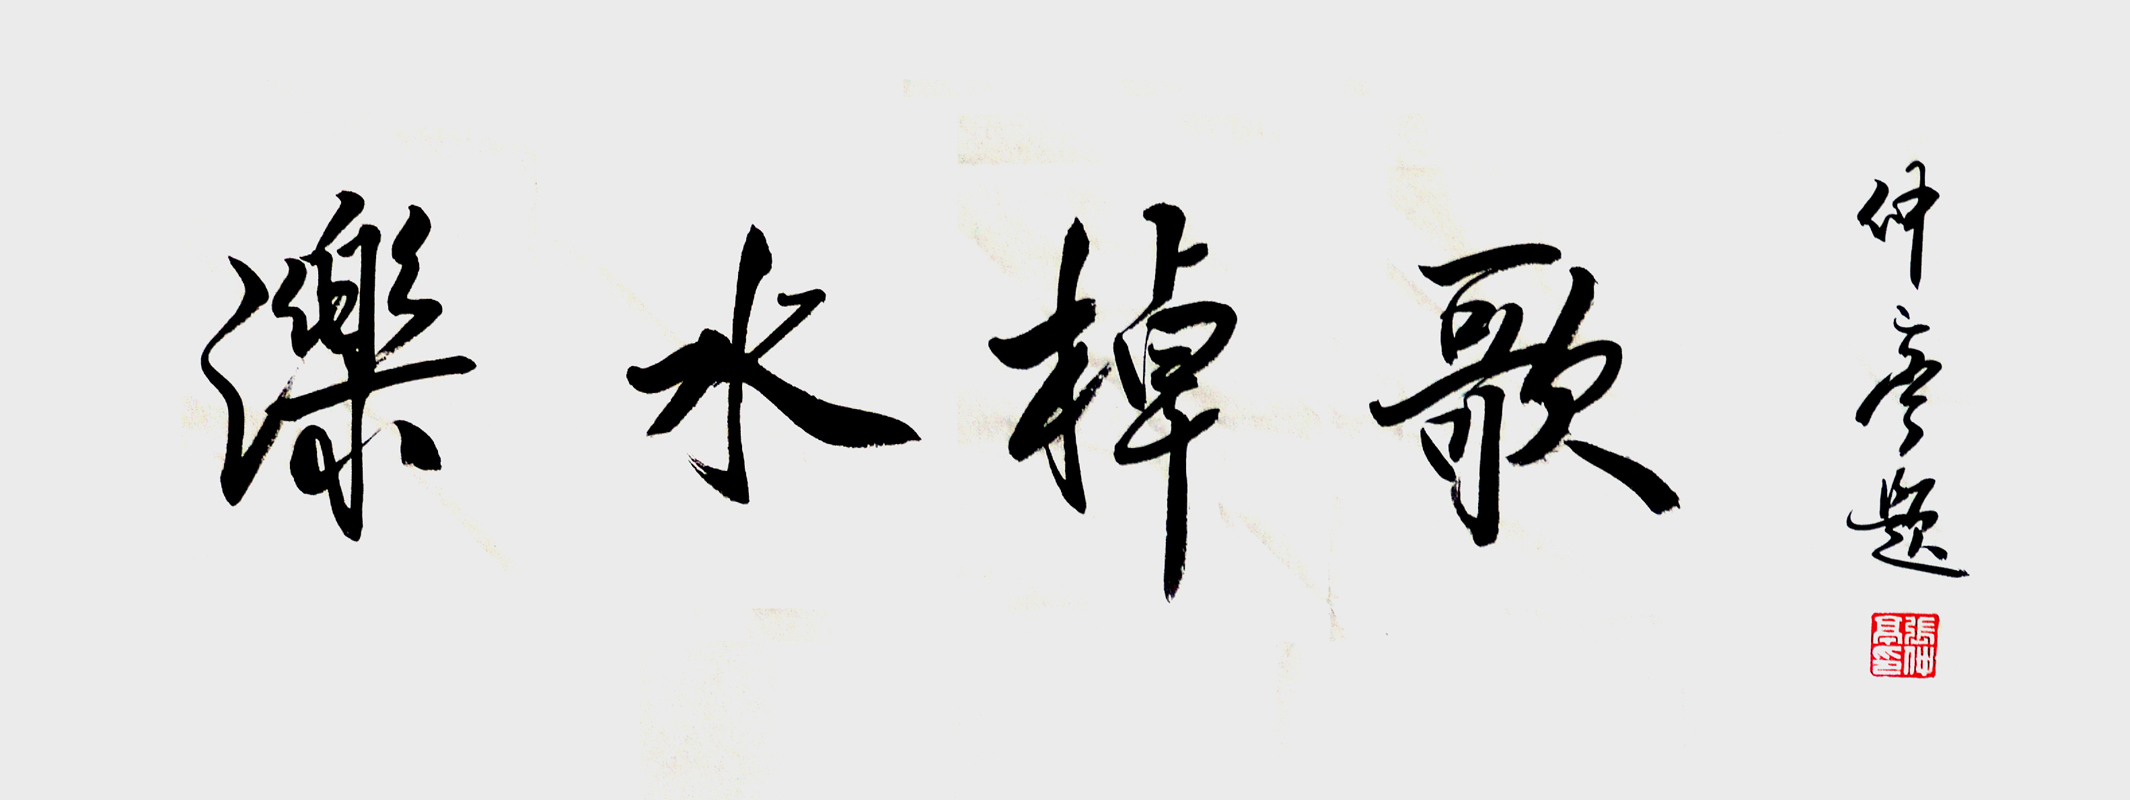 濼水棹歌
仲亭題
張仲
亭印